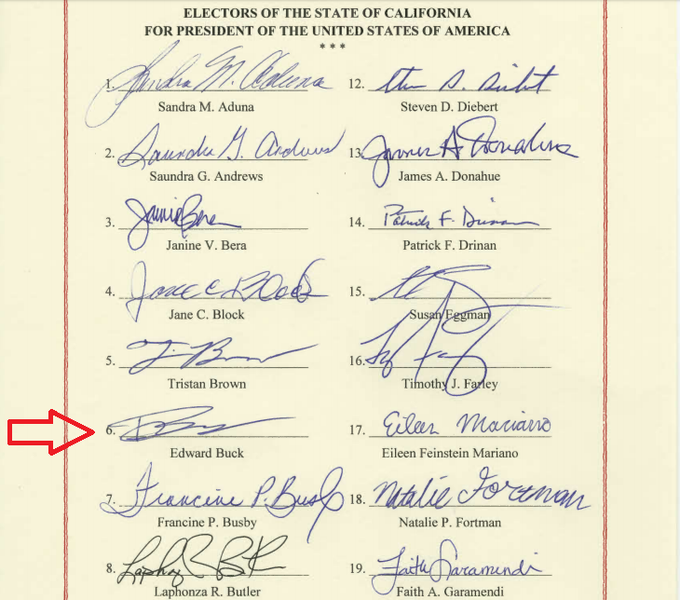 ELECTORS OF THE STATE OF CALIFORNIA
FOR PRESIDENT OF THE UNITED STATES OF AMERICA
* * *
1. Sandra M. Aduna
Sandra M. Aduna
2. Saundra G. Andrews
Saundra G. Andrews
3. Janine Bera
Janine V. Bera
4. Jane C Block
Jane C. Block
5.
Tristan Brown
6.
Edward Buck
7. Francine P. Busby
Francine P. Busby
8.
Laphonza R. Butler
12.
Steven D. Diebert
13. James A Donahue
James A. Donahue
14. Patrick F. Drinan
Patrick F. Drinan
15.
Susan Eggman
16.
Timothy J. Farley
17. Eileen Mariano
Eileen Feinstein Mariano
18. Natalie Fortman
Natalie P. Fortman
19. Faith Garamendi
Faith A. Garamendi